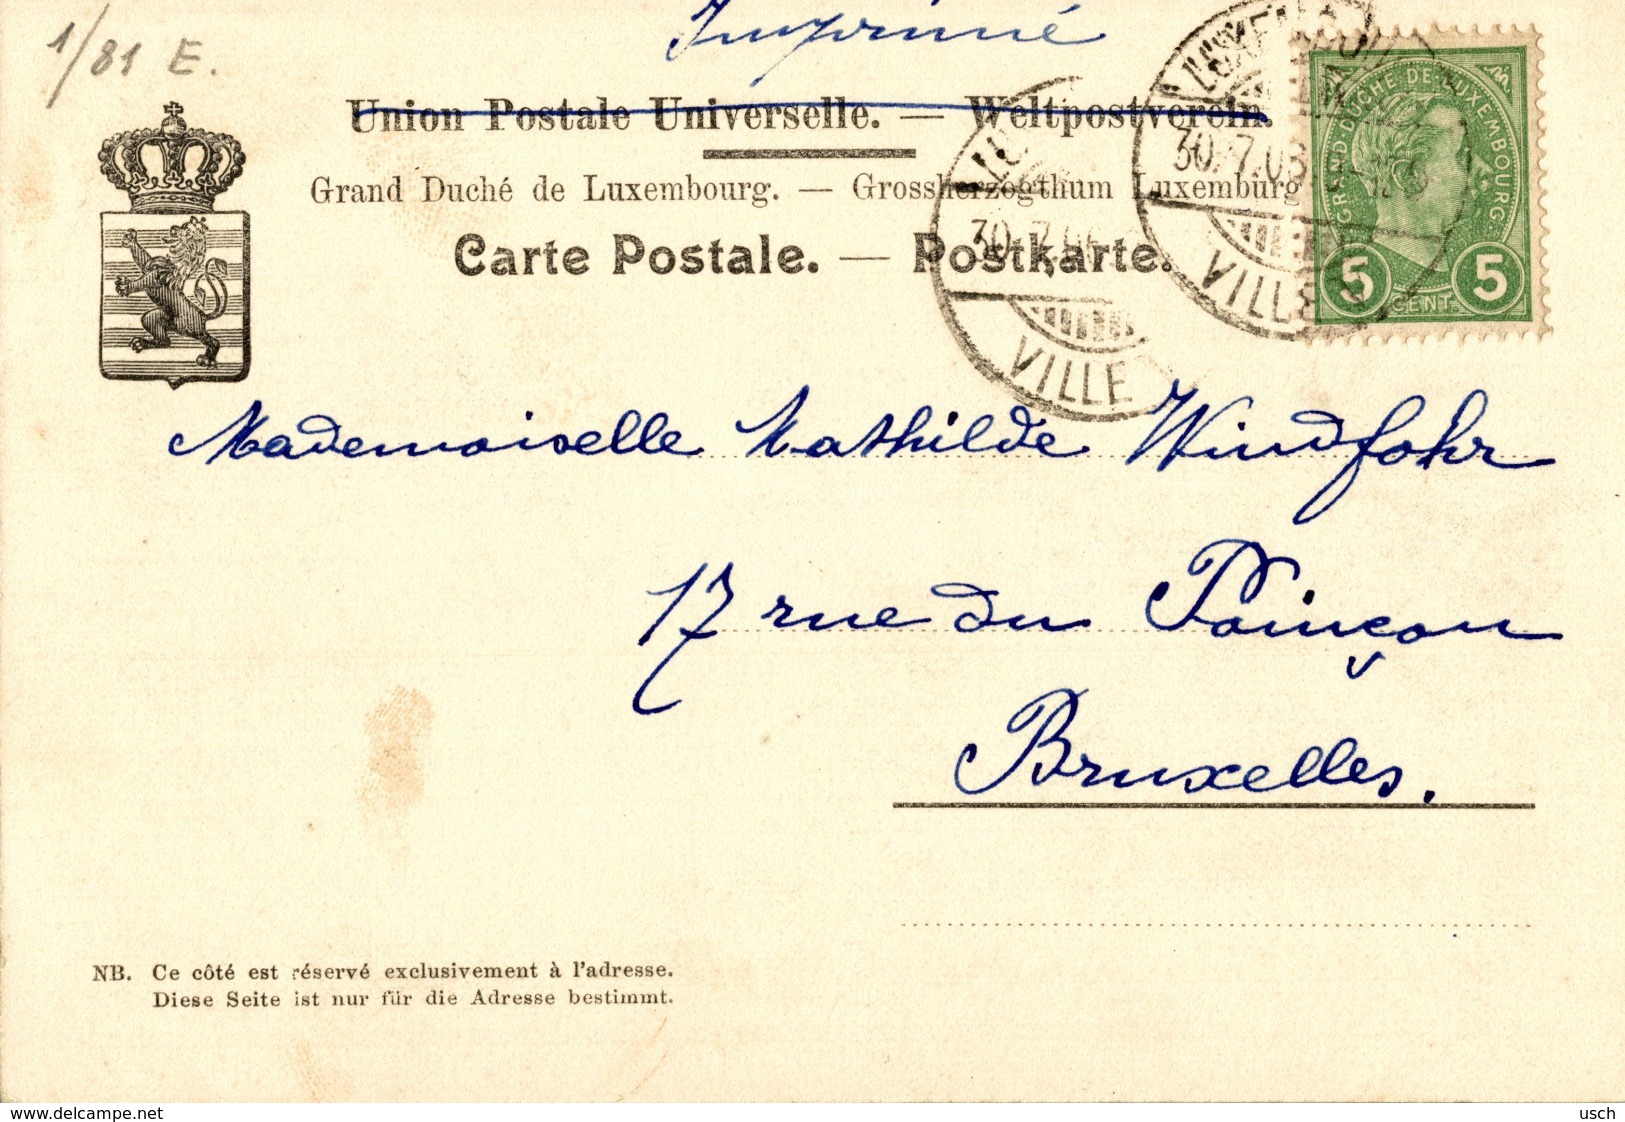 1/81 E.
Imprimé
Union Postale Universelle. — Weltpostverein.
Grand Duché de Luxembourg. — Grossherzogthum Luxemburg
Carte Postale. — Postkarte.
GRAND-DUCHÉ DE LUXEMBOURG
5 CENT. 5
30.7.0
VILLE
30.7.0
VILLE
Mademoiselle Mathilde Windfohr
17 rue du Poinçon
Bruxelles.
NB. Ce côté est réservé exclusivement à l'adresse.
Diese Seite ist nur für die Adresse bestimmt.
www.delcampe.net
usch